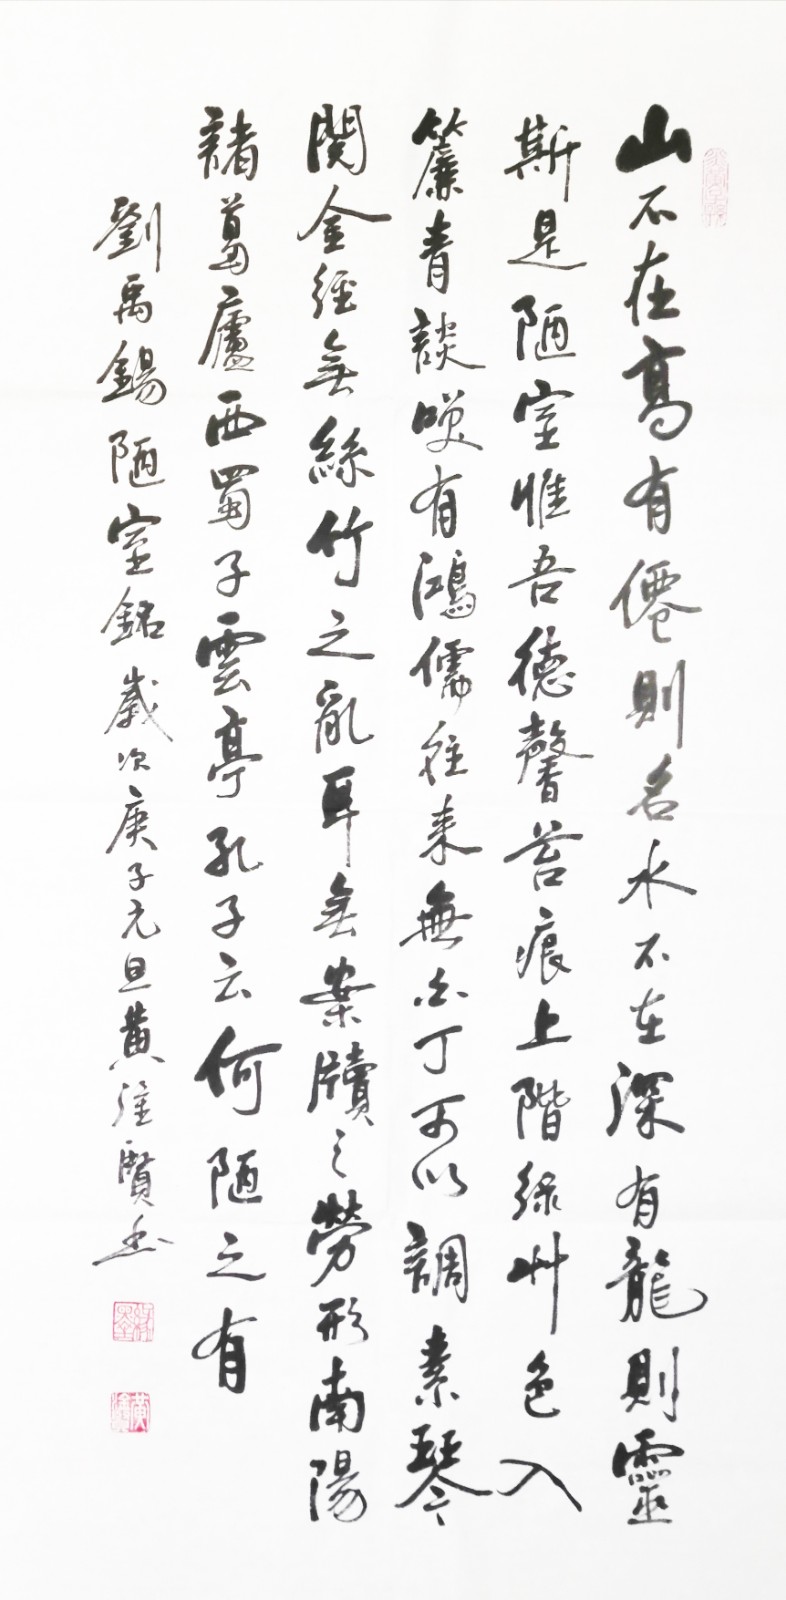 山不在高有僊則名水不在深有龍則靈
斯是陋室惟吾德馨苔痕上階綠艸色入
簾青談咲有鴻儒往来無白丁可以調素琴
閱金經無絲竹之亂耳無案牘之勞形南陽
諸葛廬西蜀子雲亭孔子云何陋之有
劉禹錫陋室銘歲次庚子元旦黄淦賢书